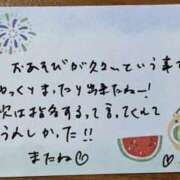 おあそびが久々という事で
ゆっくりまったり出来たねー!
次は指名するって言ってくれて
うれしかった!!
またね♡